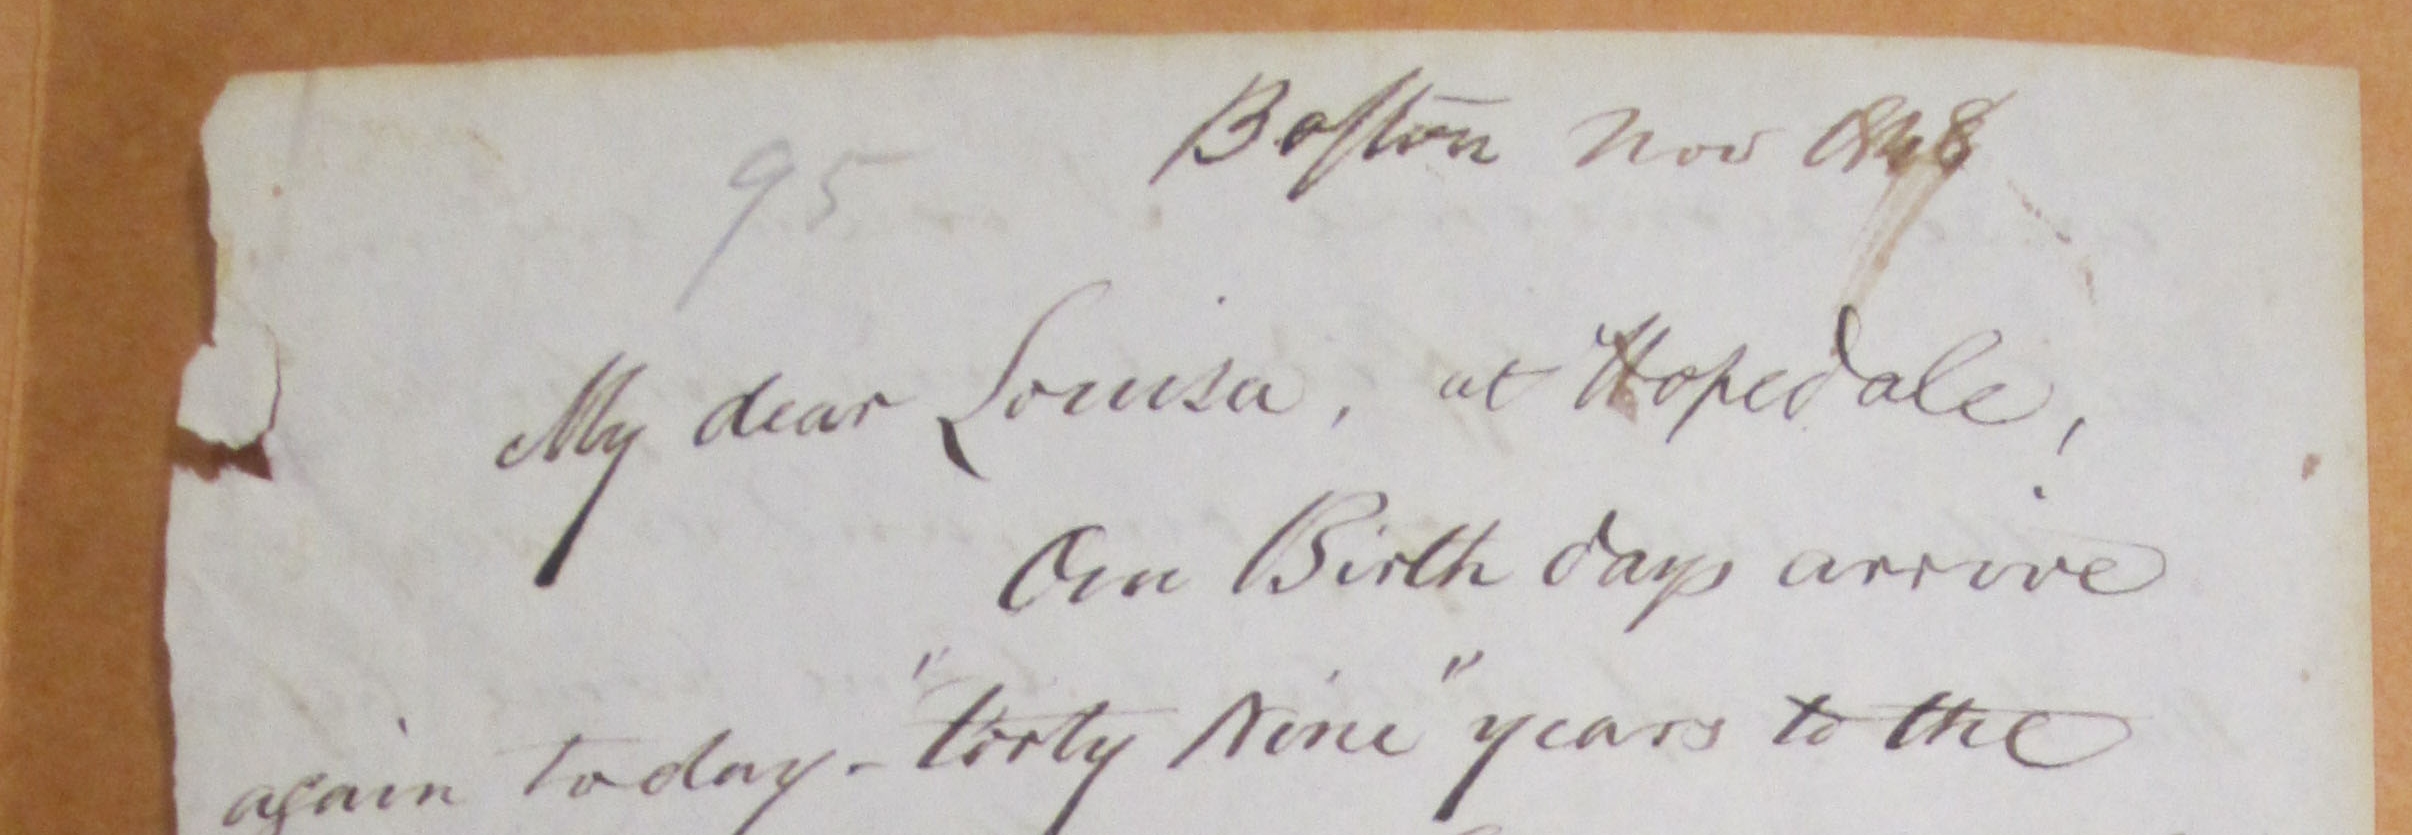 95
Boston Nov
My dear Louisa, at Hopedale,
Our Birth days arrive
again to day - "forty Nine" years to the